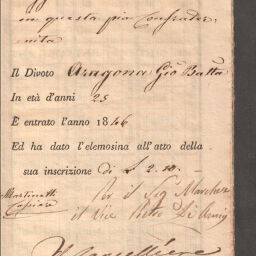 in questa pia Confrater
nita
Il Divoto Aragona Gio Batta
In età d'anni 25
È entrato l'anno 1846
Ed ha dato l'elemosina all'atto della
sua inscrizione di £ 2.10
Per il Sig Marchese
il Vice
Cassiere
Il Cancelliere